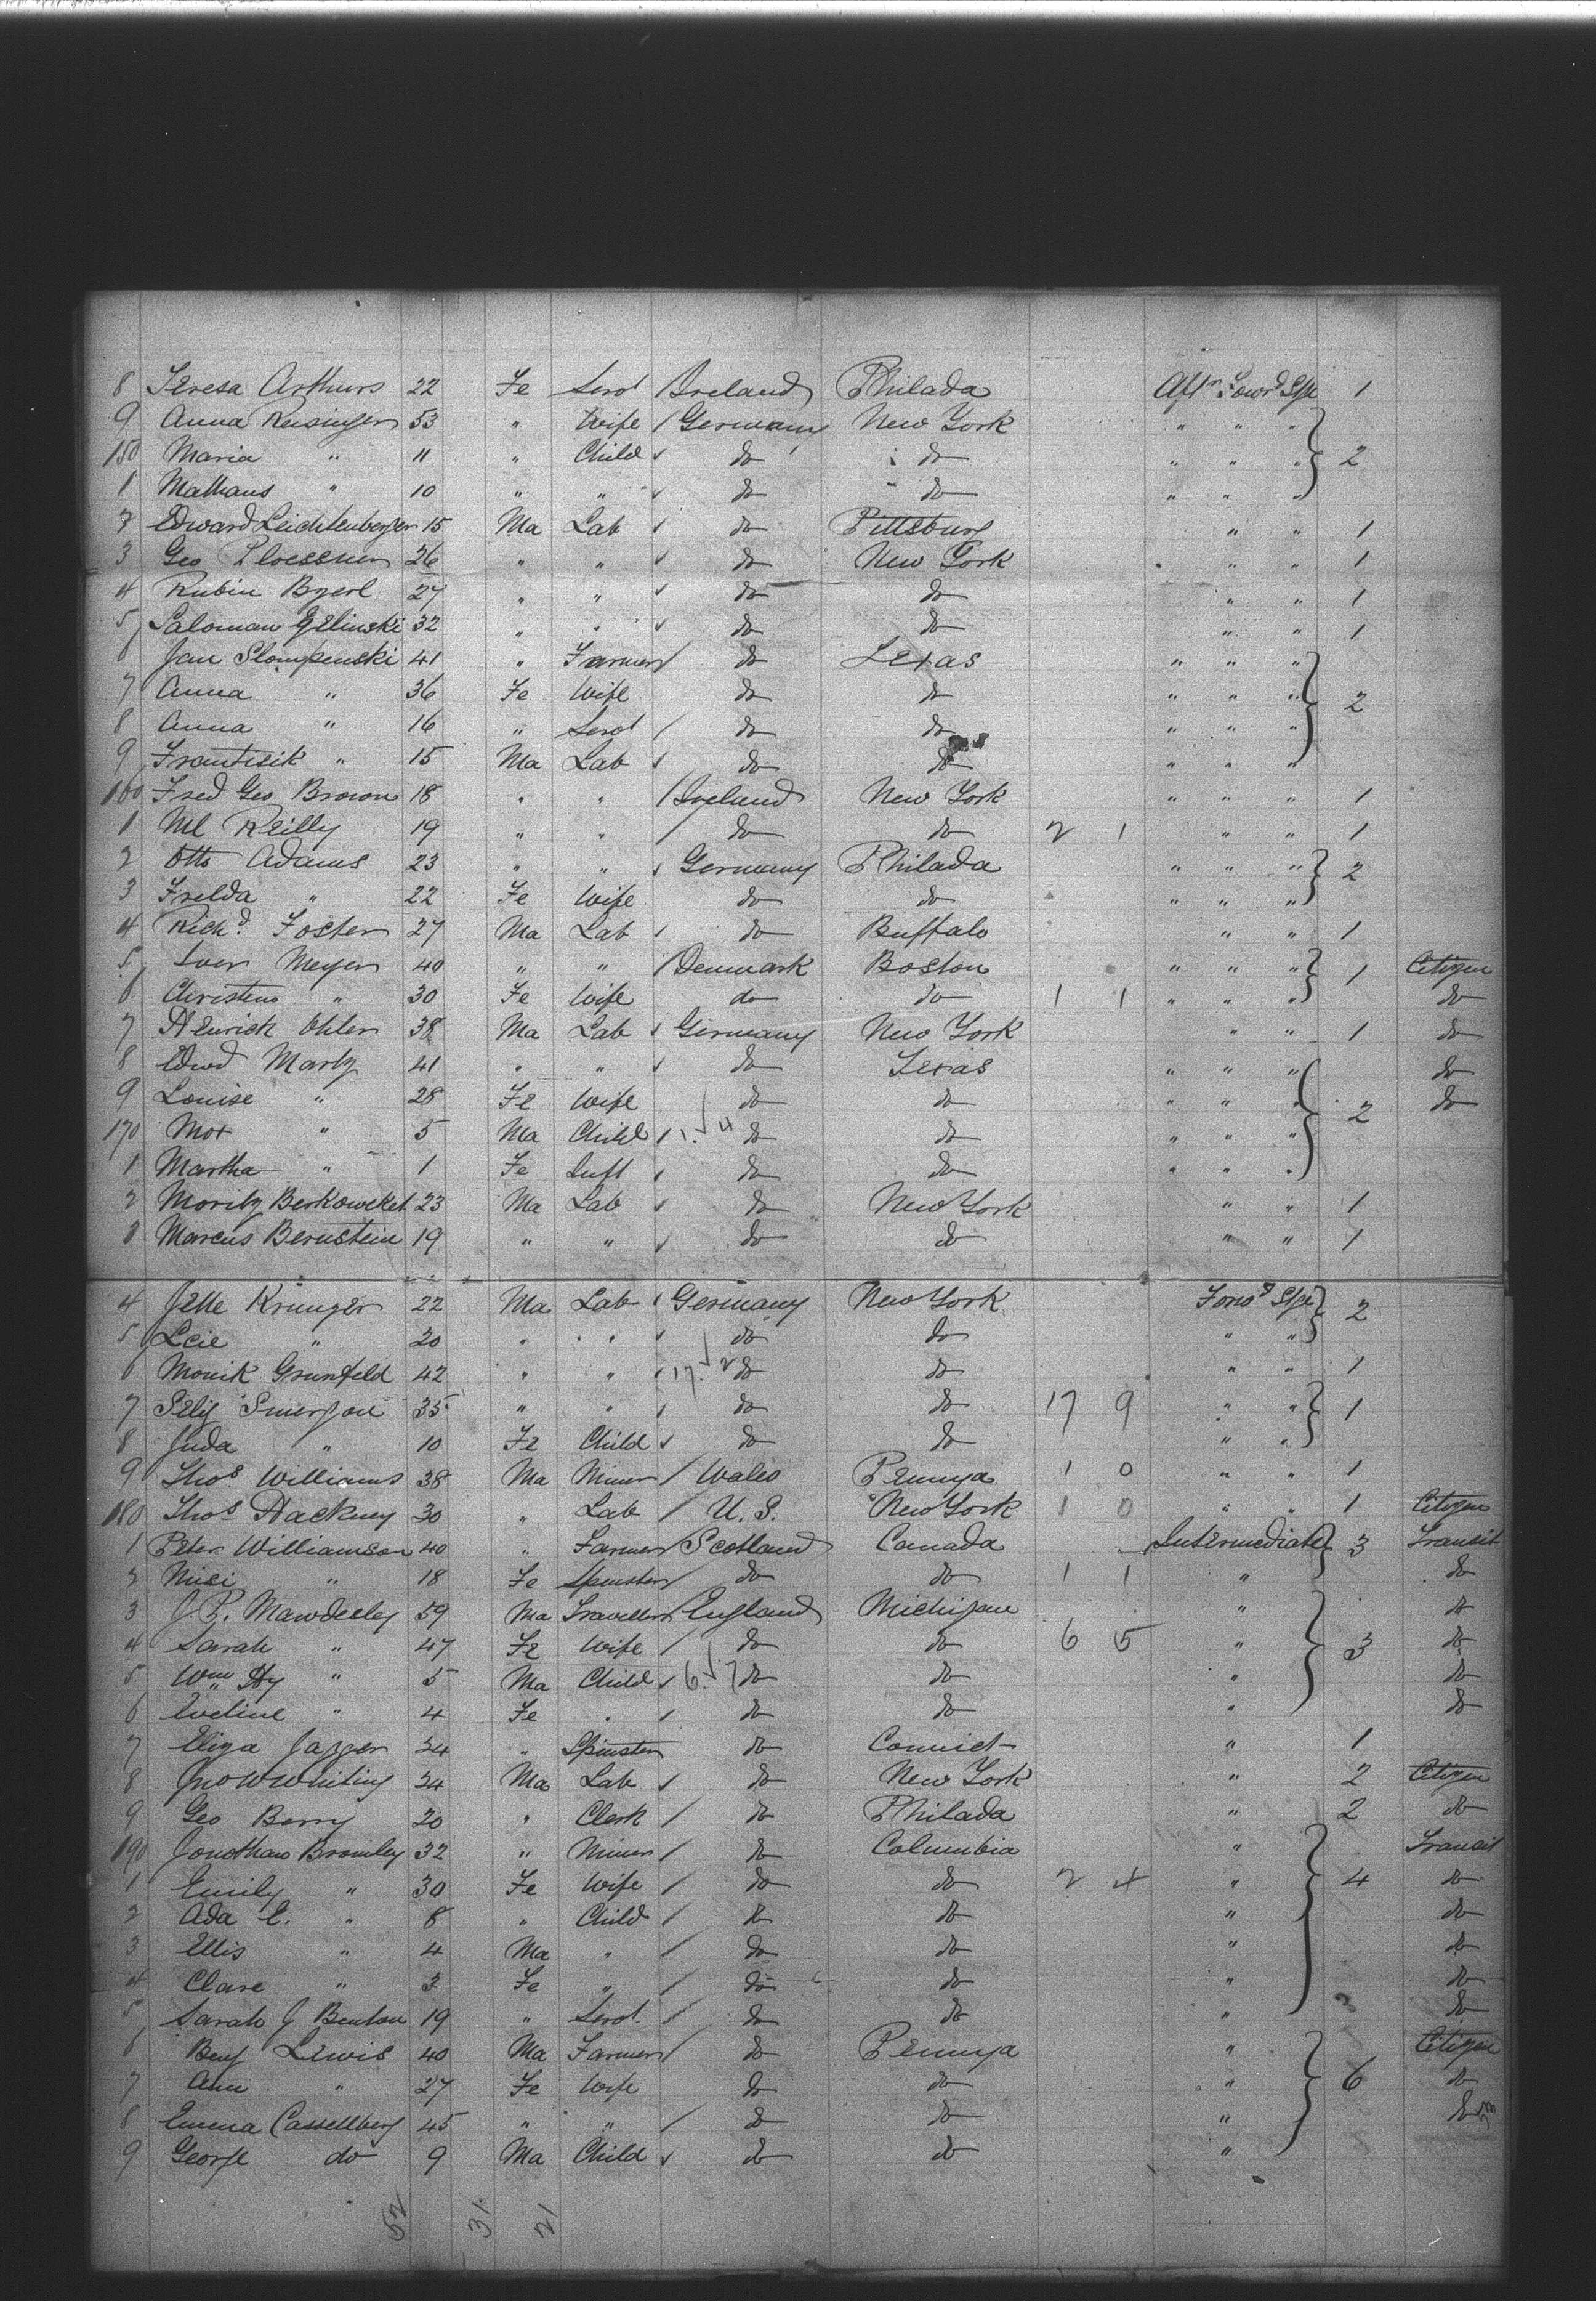 8 Teresa Arthurs 22 Fe Servt / Ireland Philada Aftr Lowr Stge 1
9 Anna Reisinger 53 " Wife / Germany New York " " "
150 Maria " 11 " Child do do " " " 2
1 Mathaus " 10 " " do do " " "
2 Edward Leichtenberger 15 Ma Lab do Pittsburg " " 1
3 Geo Ploessner 26 " " do New York " " 1
4 Rubin 27 " " do do " " 1
5 Saloman Gelinski 32 " " do do " " 1
6 Jan Slompenski 41 " Farmer / do Texas " " "
7 Anna " 36 Fe Wife do do " " " 2
8 Anna " 16 " Servt / do do " " "
9 Frantisik " 15 Ma Lab do do " " "
160 Fred Geo Brown 18 " " / Ireland New York " " " 1
1 Ml Reilly 19 " " / do do 2 1 " " 1
2 Otto Adams 23 " " Germany Philada " " " 2
3 Frelda " 22 Fe Wife do do " " "
4 Richd. Foster 27 Ma Lab do Buffalo " " 1
5 Iver Meyer 40 " " / Denmark Boston " " " 1 Citizen
6 Christens " 30 Fe Wife do do 1 1 " " " do
7 Henrich Ohler 38 Ma Lab Germany New York " " 1 do
8 Edwd Marty 41 " " do Texas " " " do
9 Louise " 28 Fe Wife do do " " " 2 do
170 Max " 5 Ma Child 1. 4 do do " " "
1 Martha " 1 Fe Inft do do " " "
2 Moritz Berkowcket 23 Ma Lab do New York " " 1
3 Marcus Bernstein 19 " " do do " " 1
4 Jette Krunger 22 Ma Lab Germany New York Forwd Stge 2
5 Leie " 20 " " do do " "
6 Monik Grunfeld 42 " " 17. 2 do do " " 1
7 Selig 35 " " do do 17 9 " " 1
8 Juda " 10 Fe Child do do " "
9 Thos Williams 38 Ma Miner / Wales Pennya 1 0 " " 1
180 Thos Hackney 30 " Lab / U. S. New York 1 0 " " 1 Citizen
1 Peter Williamson 40 " Farmer / Scotland Canada Intermediate 3 Transit
2 Misi " 18 Fe Spinster / do do 1 1 " do
3 J. P. Mawdesley 59 Ma Traveller England Michigan " do
4 Sarah " 47 Fe Wife / do do 6 5 " 3 do
5 Wm Hy " 5 Ma Child 6. 7 do do " do
6 Eveline " 4 Fe " / do do " do
7 Eliza Jagger 24 " Spinster do Connict " 1
8 Jno W Whiting 24 Ma Lab do New York " 2 Citizen
9 Geo Berry 20 " Clerk / do Philada " 2 do
190 Jonathan Bromley 32 " Miner / do Columbia " Transit
1 Emily " 30 Fe Wife / do do 2 4 " 4 do
2 Ada E. " 8 " Child / do do " do
3 Ellis " 4 Ma " / do do " do
4 Clare " 3 Fe " / do do " do
5 Sarah J Benton 19 " Servt. / do do " do
6 Benj Lewis 40 Ma Farmer / do Pennya " Citizen
7 Ann " 27 Fe Wife do do " 6 do
8 Emma Cassellberg 45 " " / do do " do
9 George do 9 Ma Child do do "
52 31 21